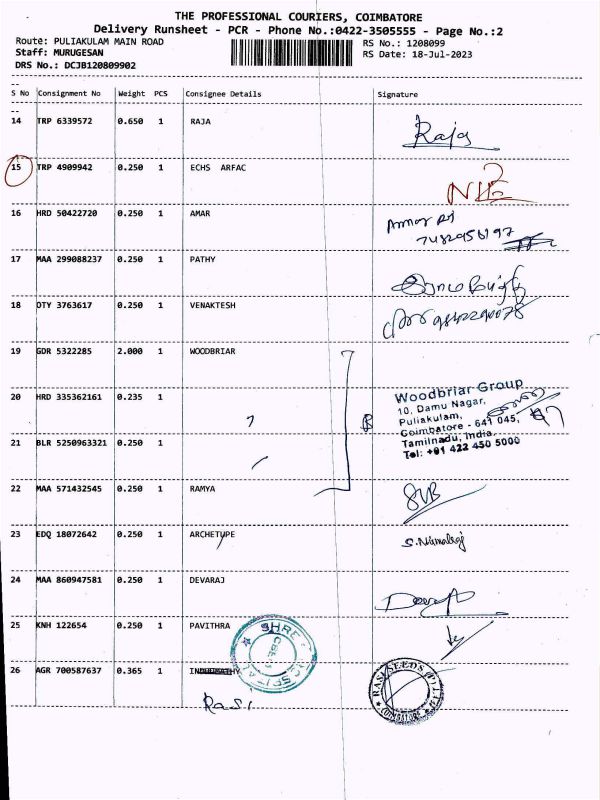 THE PROFESSIONAL COURIERS, COIMBATORE
Delivery Runsheet - PCR - Phone No.:0422-3505555 - Page No.:2
Route: PULIAKULAM MAIN ROAD RS No.: 1208099
Staff: MURUGESAN RS Date: 18-Jul-2023
DRS No.: DCJB120809902
S No Consignment No Weight PCS Consignee Details Signature
14 TRP 6339572 0.650 1 RAJA Raja
15 TRP 4909942 0.250 1 ECHS ARFAC
16 HRD 50422720 0.250 1 AMAR
17 MAA 299088237 0.250 1 PATHY
18 OTY 3763617 0.250 1 VENAKTESH
19 GDR 5322285 2.000 1 WOODBRIAR
20 HRD 335362161 0.235 1
Woodbriar Group
10, Damu Nagar,
Puliakulam,
Coimbatore - 641 045,
Tamilnadu, India.
Tel: +91 422 450 5000
21 BLR 5250963321 0.250 1
22 MAA 571432545 0.250 1 RAMYA
23 EDQ 18072642 0.250 1 ARCHETUPE
24 MAA 860947581 0.250 1 DEVARAJ
25 KNH 122654 0.250 1 PAVITHRA
SHREE HOSPITAL
26 AGR 700587637 0.365 1
Rasi
RASI SEEDS (P) LTD
COIMBATORE